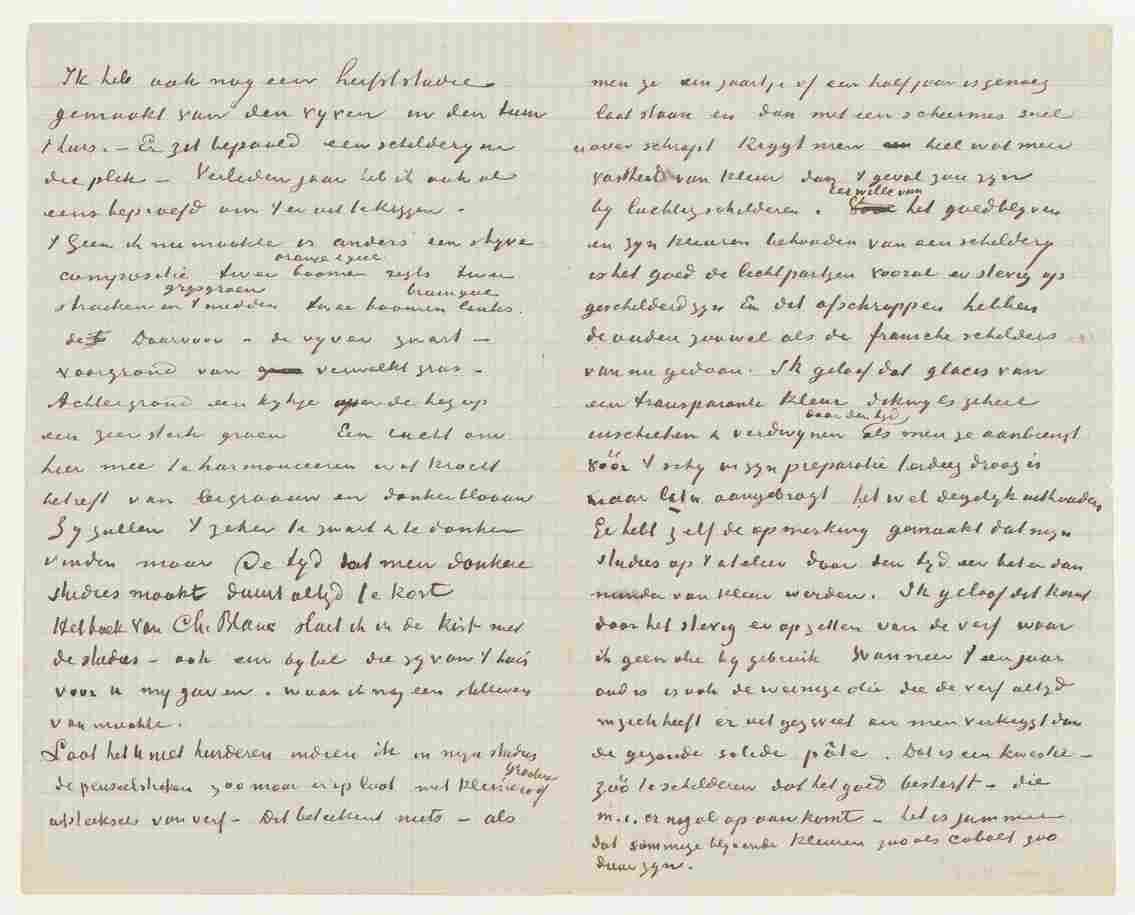 Ik heb ook nog een herfststudie
gemaakt van den vyver in den tuin
t huis. – Er zit bepaald een schildery in
die plek – Verleden jaar heb ik ook al
eens beproefd om 't er uit te krygen.
't Geen ik nu maakte is anders een styve
oranje & geele
compositie twee boomen regts twee
grysgroen bruingeel
struiken in 't midden twee boomen links.
de Daarvoor – de vyver zwart –
voorgrond van verwelkt gras –
Achtergrond een kykje over de heg op
een zeer sterk groen Een lucht om
hier mee te harmonieeren wat kracht
betreft van leigraauw en donkerblaauw
Gy zullen 't zeker te zwart & te donker
vinden maar De tyd dat men donkere
studies maakt duurt altyd te kort
Het boek van Ch. Blanc sluit ik in de kist met
de studies – ook een bybel die zy van 't huis
voor u my gaven. waar ik nog een stilleven
van maakte.
Laat het u niet hinderen indien ik in myn studies
grootere
de penseelstreken zoo maar er op laat met kleiner of
uitsteeksels van verf – Dit beteekent niets – als
men ze een jaartje of een half jaar is genoeg
laat staan en dan met een scheermes snel
erover schrapt krygt men heel wat meer
vastheid van kleur dan 't geval zou zyn
ter wille van
by luchtig schilderen. Voor het goedblyven
en zyn kleuren behouden van een schildery
is het goed de lichtpartyen vooral er stevig op
geschilderd zyn En dit afschrappen hebben
de ouden zoowel als de fransche schilders
van nu gedaan. Ik geloof dat glacis van
een transparante kleur dikwyls geheel
door den tyd
inschieten & verdwynen als men ze aanbrengt
vóór 't schy in zyn preparatie terdeeg droog is
maar later aangebragt het wel degelyk uithouden
Ge hebt zelf de opmerking gemaakt dat myn
studies op 't atelier door den tyd eer beter dan
minder van kleur werden. Ik geloof dit komt
door het stevig er opzetten van de verf waar
ik geen olie by gebruik Wanneer 't een jaar
oud is is ook de weinige olie die de verf altyd
in zich heeft er uit gezweet en men verkrygt dan
de gezonde solide pâte. Dat is een kwestie –
zóó te schilderen dat het goed besterft – die
m.i. er nogal op aan komt – het is jammer
dat sommige blyvende kleuren zooals cobalt zoo
duur zyn.